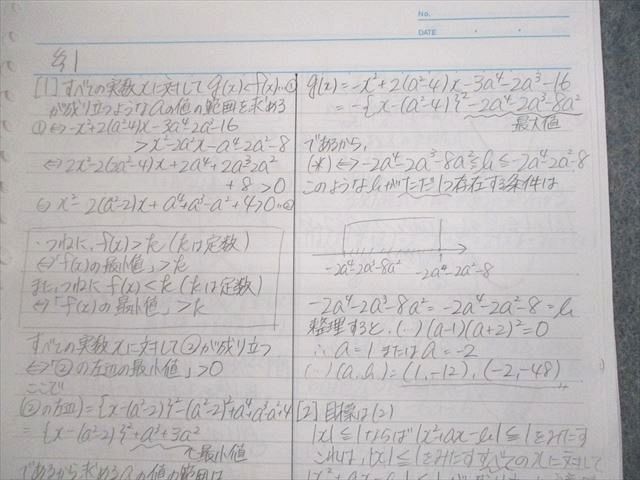 No.
DATE
例1
[1] すべての実数xに対してg(x)<f(x)…①
が成り立つようなaの値の範囲を求める
①⇔-x²+2(a²-4)x-3a⁴-2a³-16
>x²-2a²x-a⁴-2a²-8
⇔2x²-2(2a²-4)x+2a⁴+2a³-2a²
+8>0
⇔x²-2(a²-2)x+a⁴+a³-a²+4>0…②
・つねに、f(x)>k (kは定数)
⇔「f(x)の最小値」>k
また、つねにf(x)<k (kは定数)
⇔「f(x)の最小値」>k
すべての実数xに対して②が成り立つ
⇔「②の左辺の最小値」>0
ここで
(②の左辺)={x-(a²-2)}²-(a²-2)²+a⁴+a³-a²+4
={x-(a²-2)}²+a³+3a²
最小値
であるから求めるaの値の範囲は
g(x)=-x²+2(a²-4)x-3a⁴-2a³-16
=-{x-(a²-4)}²-2a⁴-2a³-8a²
最大値
であるから,
(*)⇔-2a⁴-2a³-8a²≦b≦-2a⁴-2a²-8
このようなbがただ1つ存在する条件は
-2a⁴-2a³-8a²
-2a⁴-2a²-8
-2a⁴-2a³-8a²=-2a⁴-2a²-8=b
整理すると, (…) (a-1)(a+2)²=0
∴a=1またはa=-2
(…) (a,b)=(1,-12), (-2,-48)
[2] 目標は(2)
|x|≦1ならば|x²+ax-b|≦1をみたす
これは, |x|≦1をみたすすべてのxに対して